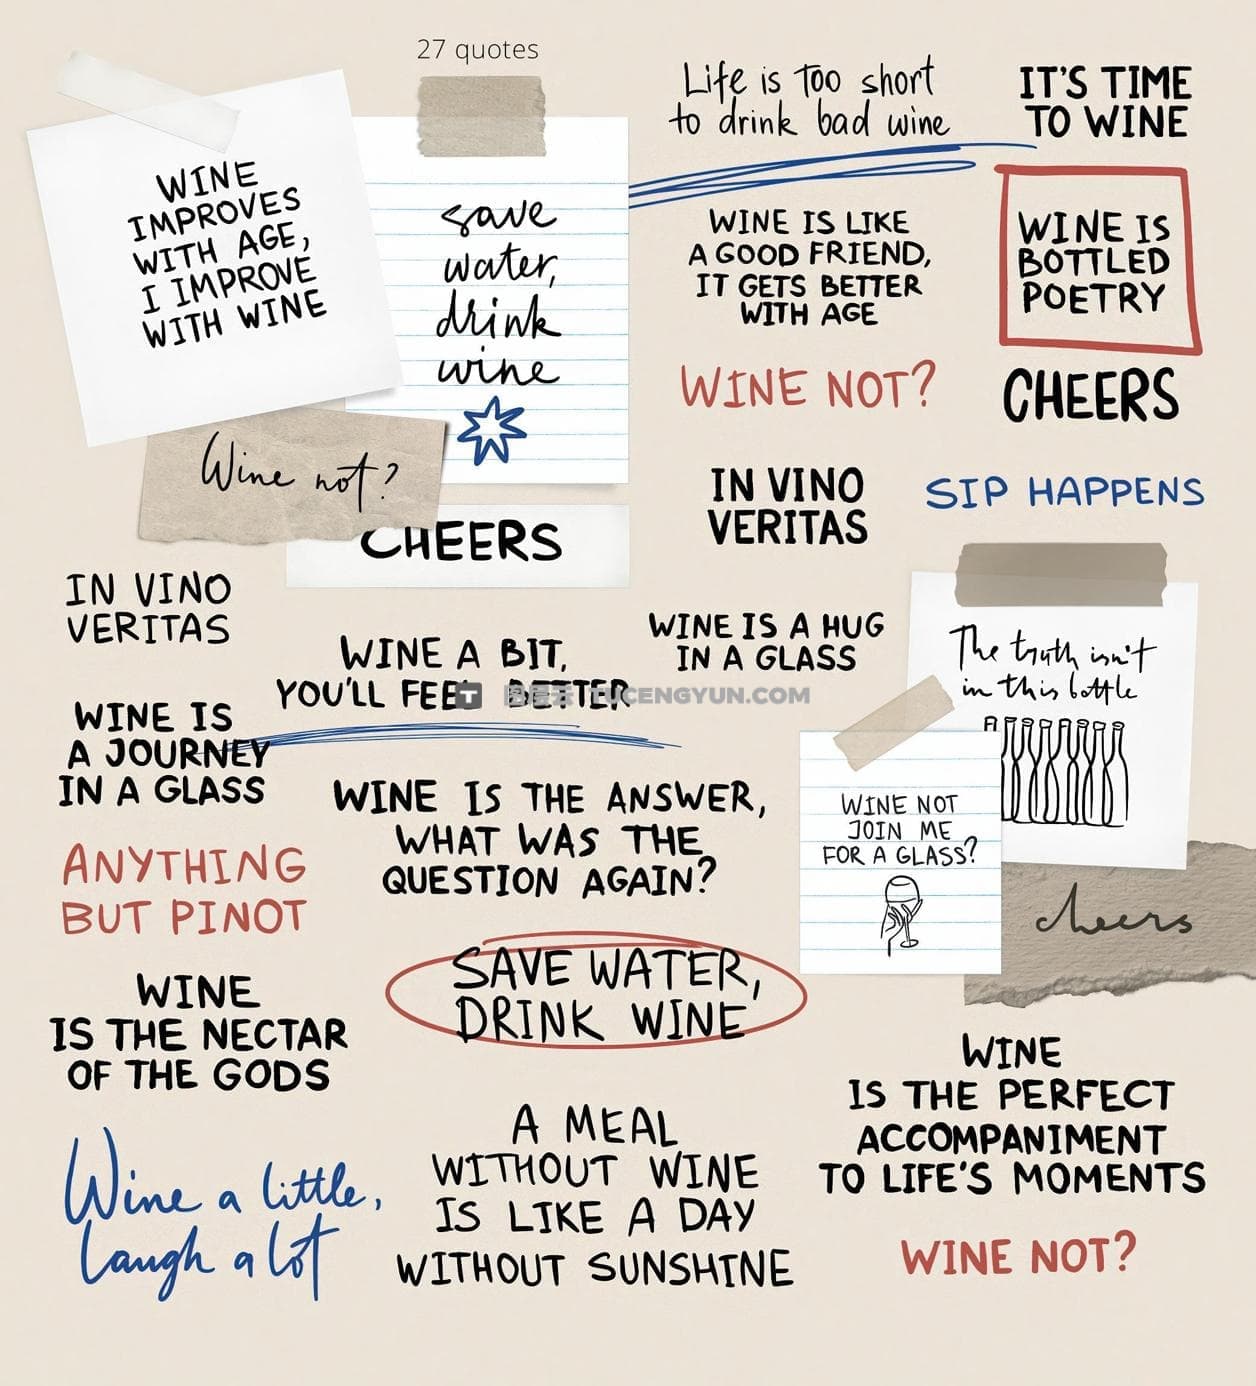 27 quotes
WINE
IMPROVES
WITH AGE,
I IMPROVE
WITH WINE
save
water,
drink
wine
Wine not?
CHEERS
Life is too short
to drink bad wine
IT'S TIME
TO WINE
WINE IS LIKE
A GOOD FRIEND,
IT GETS BETTER
WITH AGE
WINE IS
BOTTLED
POETRY
WINE NOT?
CHEERS
IN VINO
VERITAS
SIP HAPPENS
IN VINO
VERITAS
WINE A BIT,
YOU'LL FEEL BETTER
WINE IS A HUG
IN A GLASS
The truth isn't
in this bottle
TUCENGYUN.COM
WINE IS
A JOURNEY
IN A GLASS
WINE IS THE ANSWER,
WHAT WAS THE
QUESTION AGAIN?
WINE NOT
JOIN ME
FOR A GLASS?
cheers
ANYTHING
BUT PINOT
SAVE WATER,
DRINK WINE
WINE
IS THE NECTAR
OF THE GODS
WINE
IS THE PERFECT
ACCOMPANIMENT
TO LIFE'S MOMENTS
Wine a little,
laugh a lot
A MEAL
WITHOUT WINE
IS LIKE A DAY
WITHOUT SUNSHINE
WINE NOT?